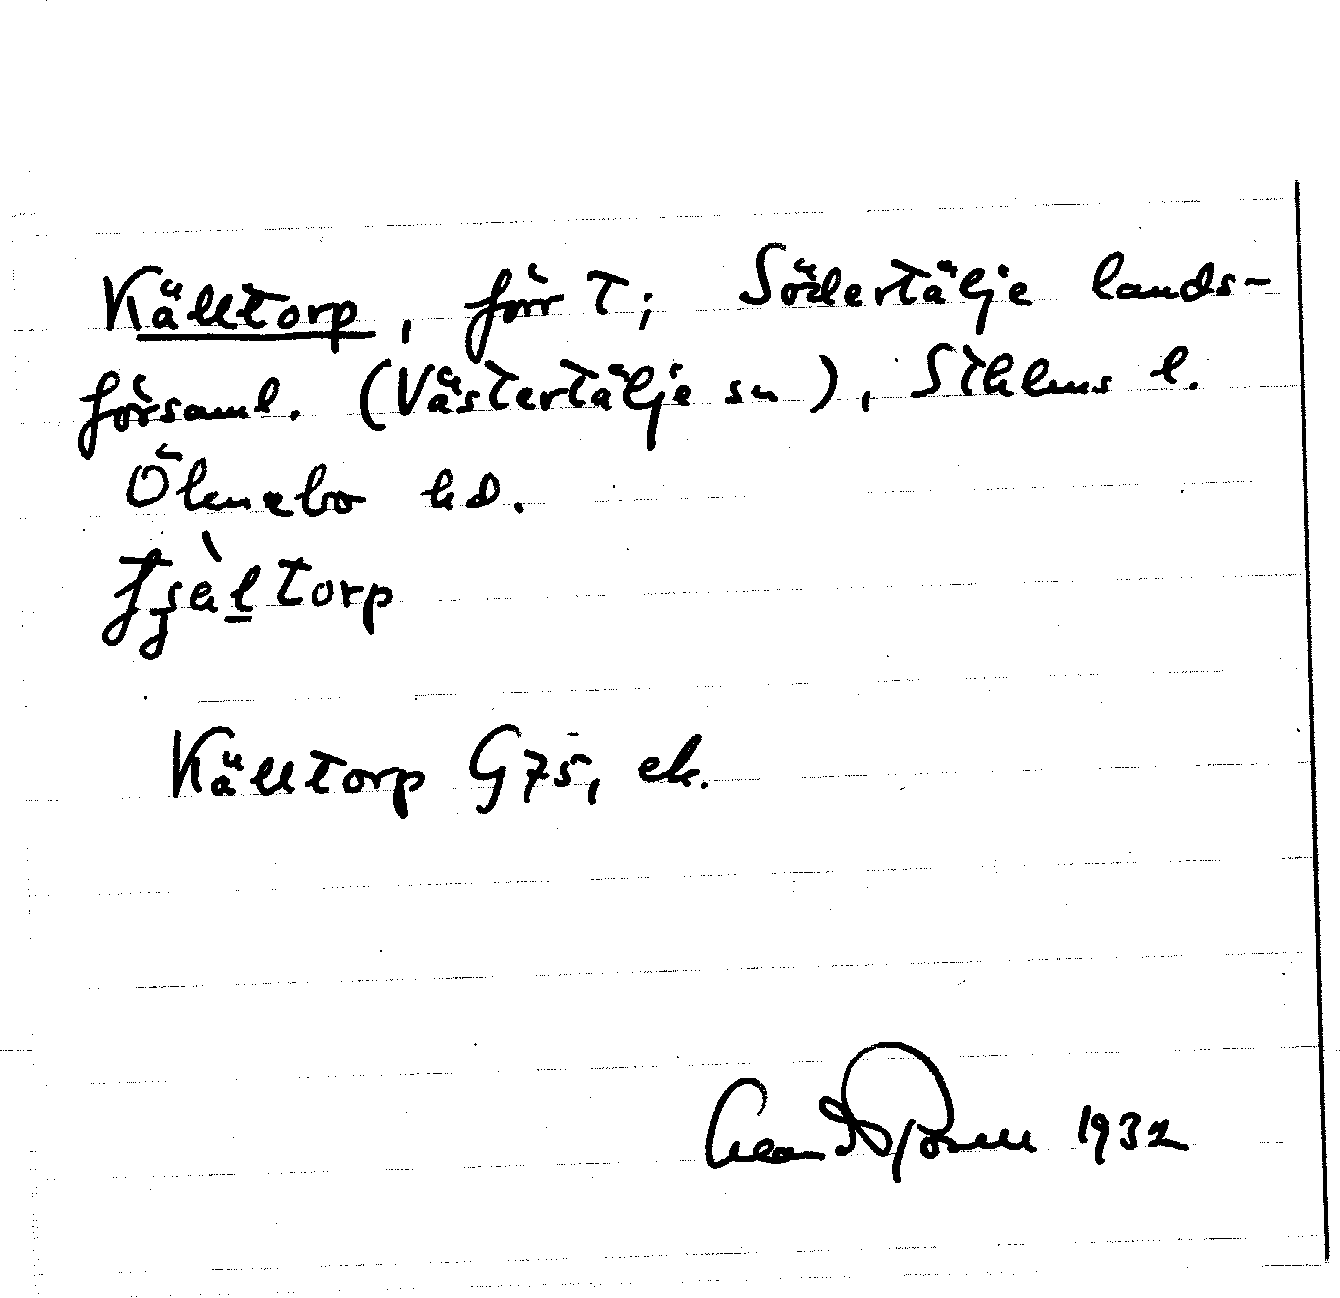 Källtorp, förr T; Södertälje lands-
församl. (Västertälje sn), Sthlms l.
Öknebo hd.
Källtorp G75, ek.
1932